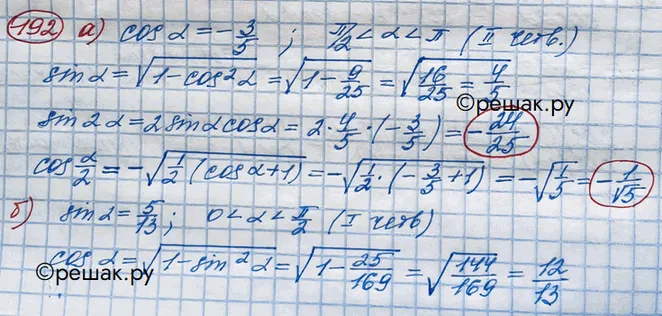 192 а) cos α = -3/5 ; π/2 < α < π (II четв.)
sin α = √(1-cos²α) = √(1-9/25) = √(16/25) = 4/5
©решак.ру
sin 2α = 2 sin α cos α = 2·4/5·(-3/5) = -24/25
cos α/2 = -√(1/2 (cos α+1)) = -√(1/2·(-3/5+1)) = -√(1/5) = -1/√5
б) sin α = 5/13 ; 0 < α < π/2 (I четв)
cos α = √(1-sin²α) = √(1-25/169) = √(144/169) = 12/13
©решак.ру